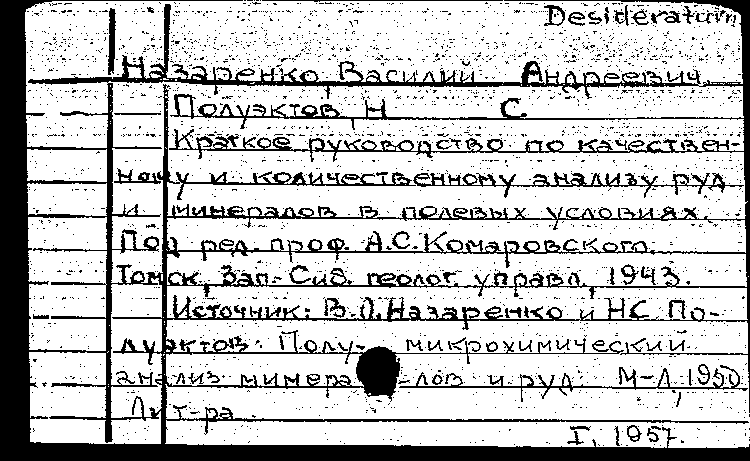 Desideratum
Назаренко, Василий Андреевич
Полуэктов, Н С.
Краткое руководство по качествен-
ному и количественному анализу руд
и минералов в полевых условиях.
Под ред. проф. А.С. Комаровского.
Томск, Зап.-Сиб. геолог. управл., 1943.
Источник: В.А. Назаренко и НС По-
луэктов. Полу- микрохимический
анализ минера-лов и руд. М-Л, 1950
Лит-ра.
I, 1957.